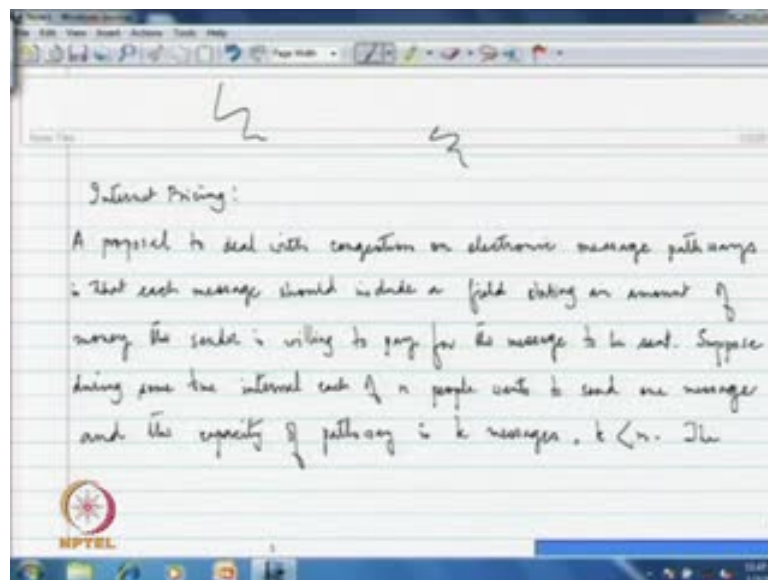 Edit View Insert Actions Tools Help
Page Width
Internet Pricing:
A proposal to deal with congestion on electronic message pathways
is that each message should include a field stating an amount of
money the sender is willing to pay for the message to be sent. Suppose
during some time interval each of n people wants to send one message
and the capacity of pathway is k messages, k < n. The
NPTEL